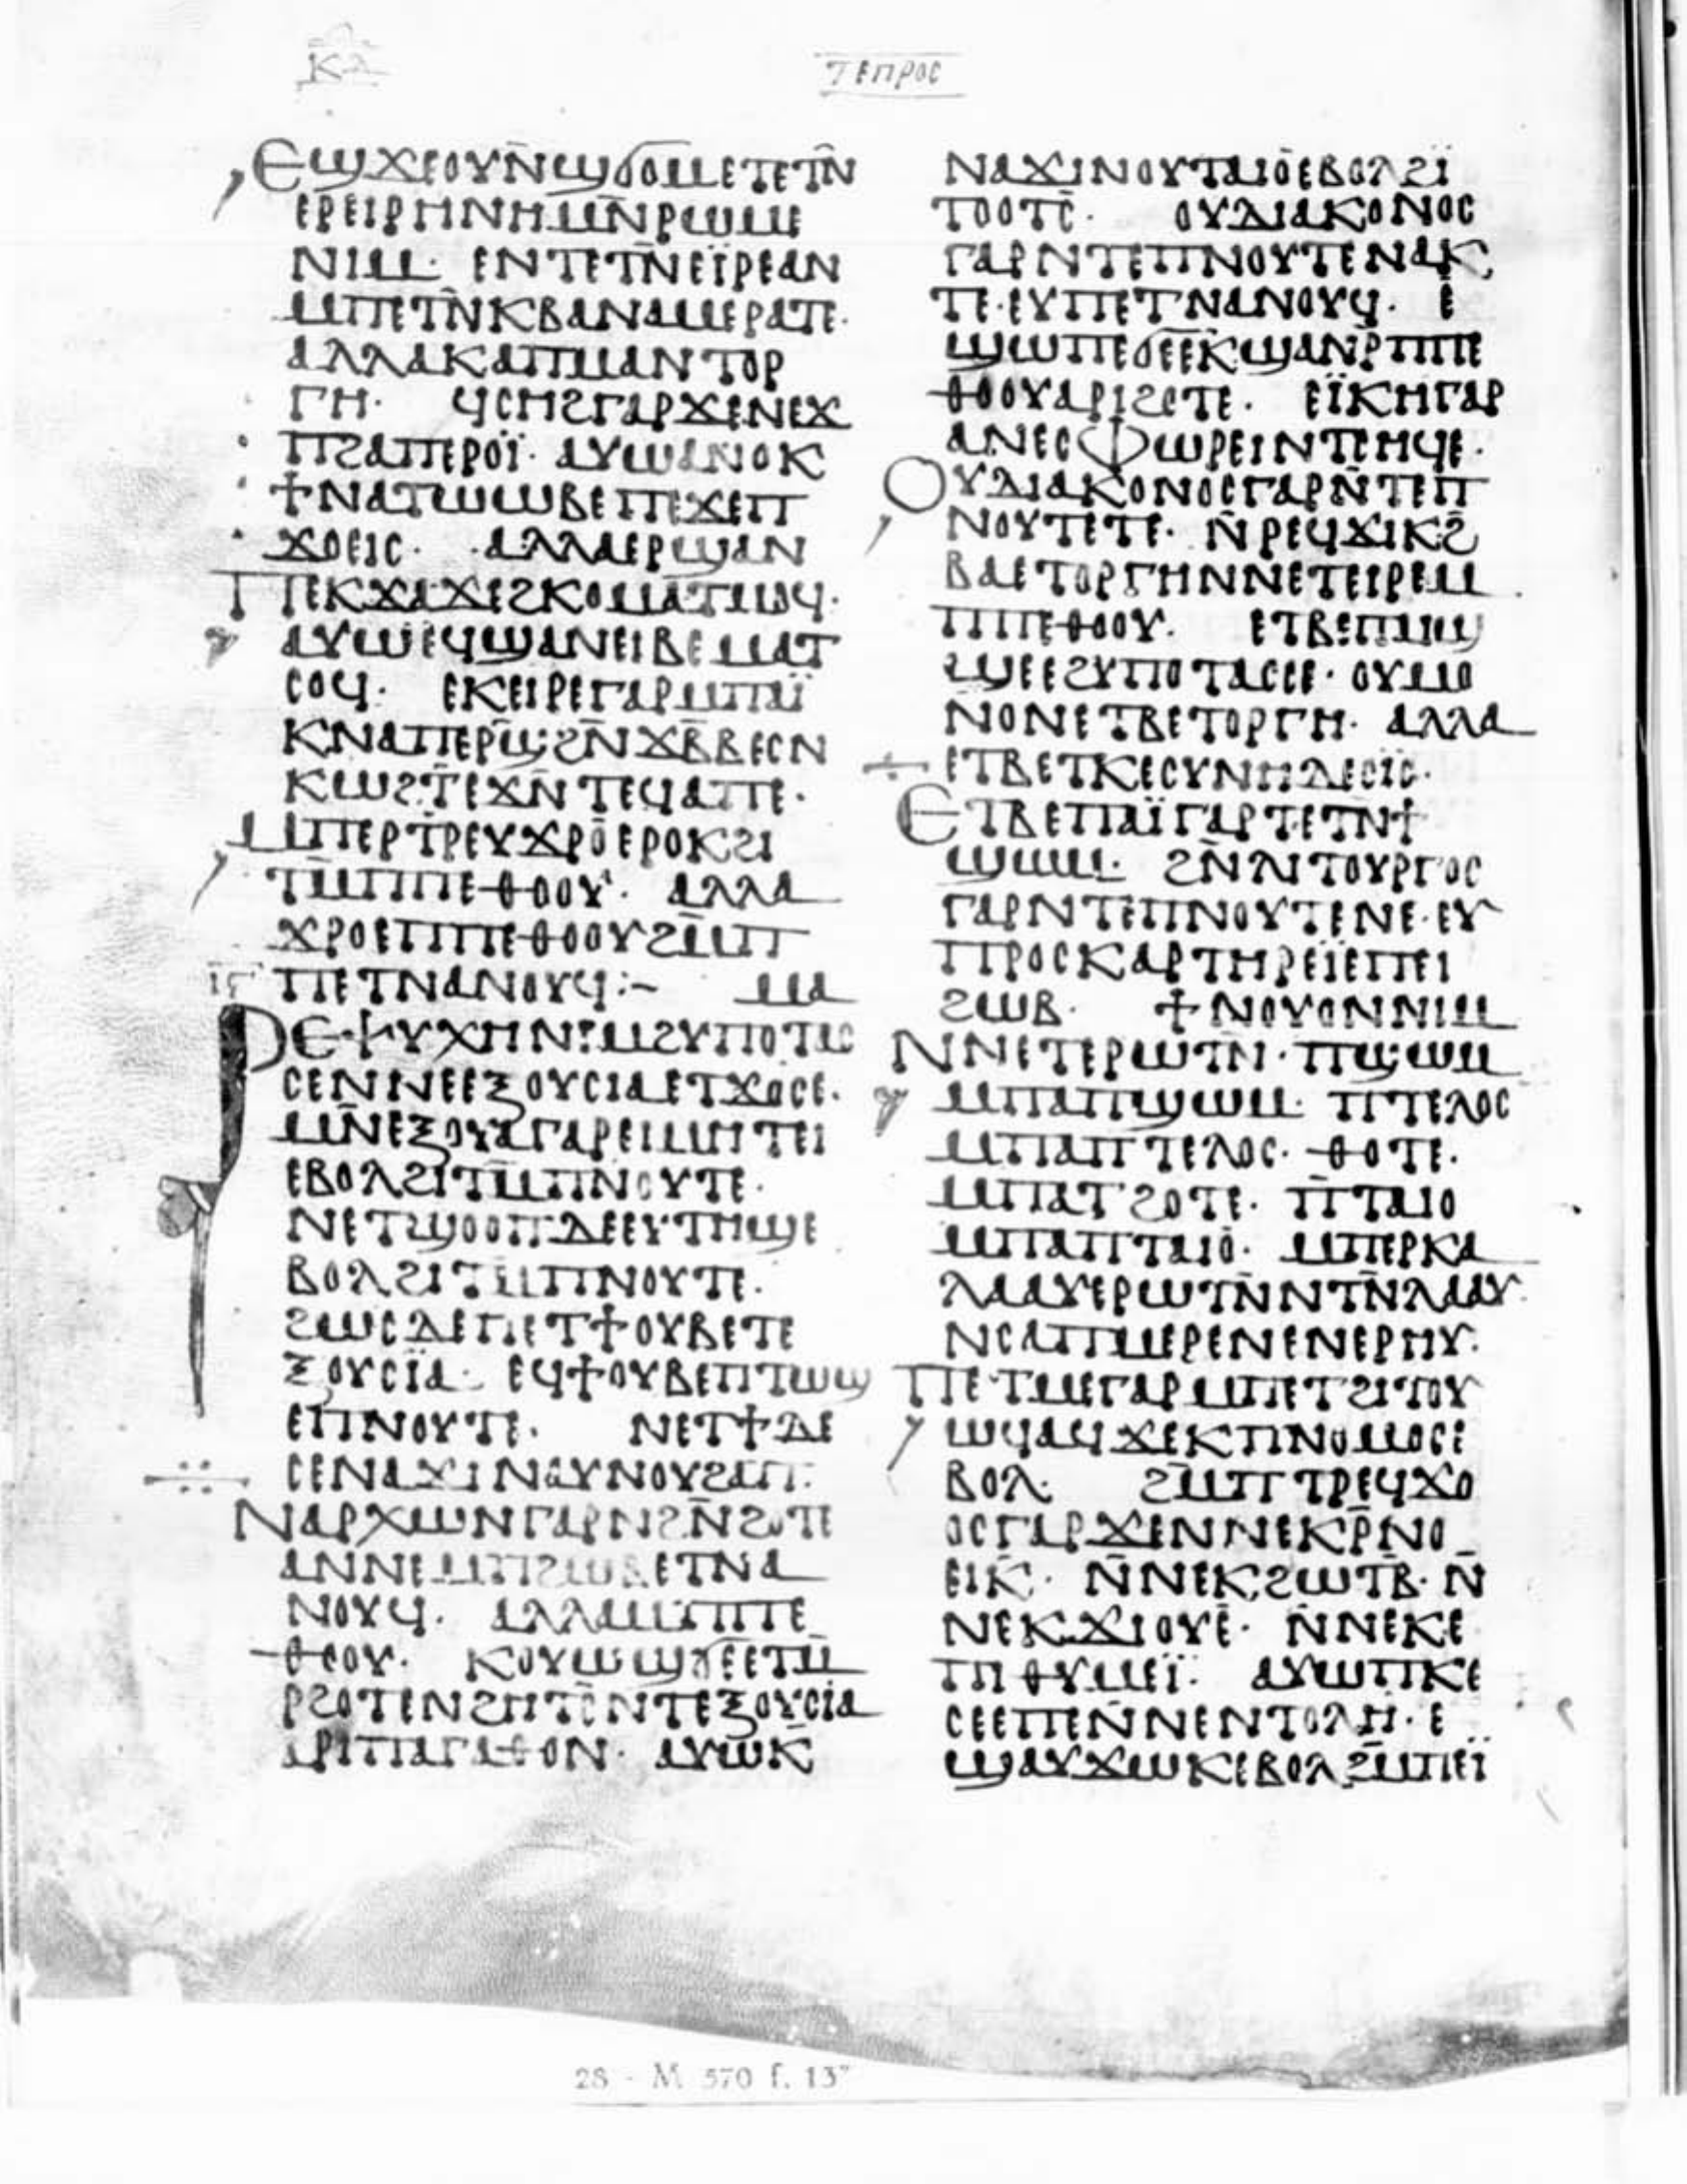 ⲕⲁ
ⲧⲉⲡⲣⲟⲥ
ⲉϣϫⲉⲟⲩⲛ̄ϣϭⲟⲙⲉⲧⲉⲧⲛ̄
ⲉⲣⲉⲓⲣⲏⲛⲏⲙⲛ̄ⲣⲱⲙⲉ
ⲛⲓⲙ· ⲉⲛⲧⲉⲧⲛ̄ⲉⲓ̈ⲣⲉⲁⲛ
ⲙⲡⲉⲧⲛ̄ⲕⲃⲁⲛⲁⲙⲉⲣⲁⲧⲉ·
ⲁⲗⲗⲁⲕⲁⲡⲙⲁⲛⲧⲟⲣ
ⲅⲏ· ϥⲥⲏϩⲅⲁⲣϫⲉⲛⲉϫ
ⲡϩⲁⲡⲉⲣⲟⲓ̈· ⲁⲩⲱⲁⲛⲟⲕ
ϯⲛⲁⲧⲱⲱⲃⲉⲡⲉϫⲉⲡ
ϫⲟⲉⲓⲥ· ⲁⲗⲗⲁⲉⲣϣⲁⲛ
ⲡⲉⲕϫⲁϫⲉϩⲕⲟⲙⲁⲧⲙⲟϥ·
ⲁⲩⲱⲉϥϣⲁⲛⲉⲓⲃⲉⲙⲁⲧ
ⲥⲟϥ· ⲉⲕⲉⲓⲣⲉⲅⲁⲣⲙⲡⲁⲓ̈
ⲕⲛⲁⲡⲉⲣϣϩⲛ̄ϫⲃ̄ⲃⲉⲥⲛ
ⲕⲱϩⲧ̄ⲉϫⲛ̄ⲧⲉϥⲁⲡⲉ·
ⲙⲡⲉⲣⲧⲣⲉⲩϫⲣⲟⲉⲣⲟⲕϩⲓ
ⲧⲙ̄ⲡⲡⲉⲑⲟⲟⲩ· ⲁⲗⲗⲁ
ϫⲣⲟⲉⲡⲡⲉⲑⲟⲟⲩϩⲙ̄ⲡ
ⲓⲅ ⲡⲉⲧⲛⲁⲛⲟⲩϥ:~ ⲙⲁ
ⲣⲉⲯⲩⲭⲏⲛⲓⲙϩⲩⲡⲟⲧⲁⲥ
ⲥⲉⲛⲛⲉⲉⲝⲟⲩⲥⲓⲁⲉⲧϫⲟⲥⲉ·
ⲙⲛ̄ⲉⲝⲟⲩⲥⲓⲁⲅⲁⲣⲉⲓⲙⲏⲧⲉⲓ
ⲉⲃⲟⲗϩⲓⲧⲙ̄ⲡⲛⲟⲩⲧⲉ·
ⲛⲉⲧϣⲟⲟⲡⲇⲉⲉⲩⲧⲏϣⲉ
ⲃⲟⲗϩⲓⲧⲙ̄ⲡⲛⲟⲩⲧⲉ·
ϩⲱⲥⲇⲉⲡⲉⲧϯⲟⲩⲃⲉⲧⲉ
ⲝⲟⲩⲥⲓ̈ⲁ· ⲉϥϯⲟⲩⲃⲉⲡⲧⲱϣ
ⲉⲡⲛⲟⲩⲧⲉ· ⲛⲉⲧϯⲇⲉ
ⲥⲉⲛⲁϫⲓⲛⲁⲩⲛⲟⲩϩⲁⲡ·
ⲛⲁⲣⲭⲱⲛⲅⲁⲣⲛϩⲛ̄ϩⲟⲧⲉ
ⲁⲛⲛⲉⲙⲡϩⲱⲃⲉⲧⲛⲁ
ⲛⲟⲩϥ· ⲁⲗⲗⲁⲙⲡⲡⲉ
ⲑⲟⲟⲩ· ⲕⲟⲩⲱϣϭⲉⲉⲧⲙ̄
ⲣϩⲟⲧⲉⲛϩⲏⲧⲥ̄ⲛⲧⲉⲝⲟⲩⲥⲓⲁ
ⲁⲣⲓⲡⲁⲅⲁⲑⲟⲛ· ⲁⲩⲱⲕ
ⲛⲁϫⲓⲛⲟⲩⲧⲁⲓⲟⲉⲃⲟⲗϩⲓ̈
ⲧⲟⲟⲧⲥ̄· ⲟⲩⲇⲓⲁⲕⲟⲛⲟⲥ
ⲅⲁⲣⲛⲧⲉⲡⲛⲟⲩⲧⲉⲛⲁⲕ
ⲧⲉ·ⲉⲩⲡⲉⲧⲛⲁⲛⲟⲩϥ· ⲉ
ϣⲱⲡⲉϭⲉⲉⲕϣⲁⲛⲣ̄ⲡⲡⲉ
ⲑⲟⲟⲩⲁⲣⲓϩⲟⲧⲉ· ⲉⲓ̈ⲕⲏⲅⲁⲣ
ⲁⲛⲉⲥⲫⲱⲣⲉⲓⲛⲧⲥⲏϥⲉ·
ⲟⲩⲇⲓⲁⲕⲟⲛⲟⲥⲅⲁⲣⲛ̄ⲧⲉⲡ
ⲛⲟⲩⲧⲉⲧⲉ· ⲛ̄ⲣⲉϥϫⲓⲕϩ̄
ⲃⲁⲉⲧⲟⲣⲅⲏⲛⲛⲉⲧⲉⲓⲣⲉⲙ
ⲡⲡⲉⲑⲟⲟⲩ· ⲉⲧⲃⲉⲡⲁⲓϣ
ϣⲉⲉϩⲩⲡⲟⲧⲁⲥⲥⲉ· ⲟⲩⲙⲟ
ⲛⲟⲛⲉⲧⲃⲉⲧⲟⲣⲅⲏ· ⲁⲗⲗⲁ
ⲉⲧⲃⲉⲧⲕⲉⲥⲩⲛⲏⲇⲉⲥⲓ̈ⲥ·
ⲉⲧⲃⲉⲡⲁⲓ̈ⲅⲁⲣⲧⲉⲧⲛϯ
ϣⲱⲙ· ϩⲛ̄ⲗⲓⲧⲟⲩⲣⲅⲟⲥ
ⲅⲁⲣⲛⲧⲉⲡⲛⲟⲩⲧⲉⲛⲉ·ⲉⲩ
ⲡⲣⲟⲥⲕⲁⲣⲧⲏⲣⲉⲓ̈ⲉⲡⲉⲓ
ϩⲱⲃ· ϯⲛⲟⲩⲟⲛⲛⲓⲙ
ⲛⲛⲉⲧⲉⲣⲱⲧⲛ· ⲡϣⲱⲙ
ⲙⲡⲁⲡϣⲱⲙ· ⲡⲧⲉⲗⲟⲥ
ⲙⲡⲁⲡⲧⲉⲗⲟⲥ· ⲑⲟⲧⲉ·
ⲙⲡⲁⲧϩⲟⲧⲉ· ⲡ̄ⲧⲁⲓⲟ
ⲙⲡⲁⲡⲧⲁⲓⲟ· ⲙⲡⲉⲣⲕⲁ
ⲗⲁⲁⲩⲉⲣⲱⲧⲛ̄ⲛⲧⲛ̄ⲗⲁⲁⲩ·
ⲛⲥⲁⲡⲙⲉⲣⲉⲛⲉⲛⲉⲣⲏⲩ·
ⲡⲉⲧⲙⲉⲅⲁⲣⲙⲡⲉⲧϩⲓⲧⲟⲩ
ⲱϥⲁϥϫⲉⲕⲡⲛⲟⲙⲟⲥⲉ
ⲃⲟⲗ· ϩⲙⲡⲧⲣⲉϥϫⲟ
ⲟⲥⲅⲁⲣϫⲉⲛⲛⲉⲕⲣ̄ⲛⲟ
ⲉⲓⲕ· ⲛ̄ⲛⲉⲕϩⲱⲧⲃ̄·ⲛ̄
ⲛⲉⲕϫⲓⲟⲩⲉ· ⲛ̄ⲛⲉⲕⲉ
ⲡⲓⲑⲩⲙⲉⲓ̈· ⲁⲩⲱⲡⲕⲉ
ⲥⲉⲉⲡⲉⲛ̄ⲛⲉⲛⲧⲟⲗⲏ·ⲉ
ϣⲁⲩϫⲱⲕⲉⲃⲟⲗϩⲙ̄ⲡⲉⲓ̈
28 - M 570 f. 13ᵛ